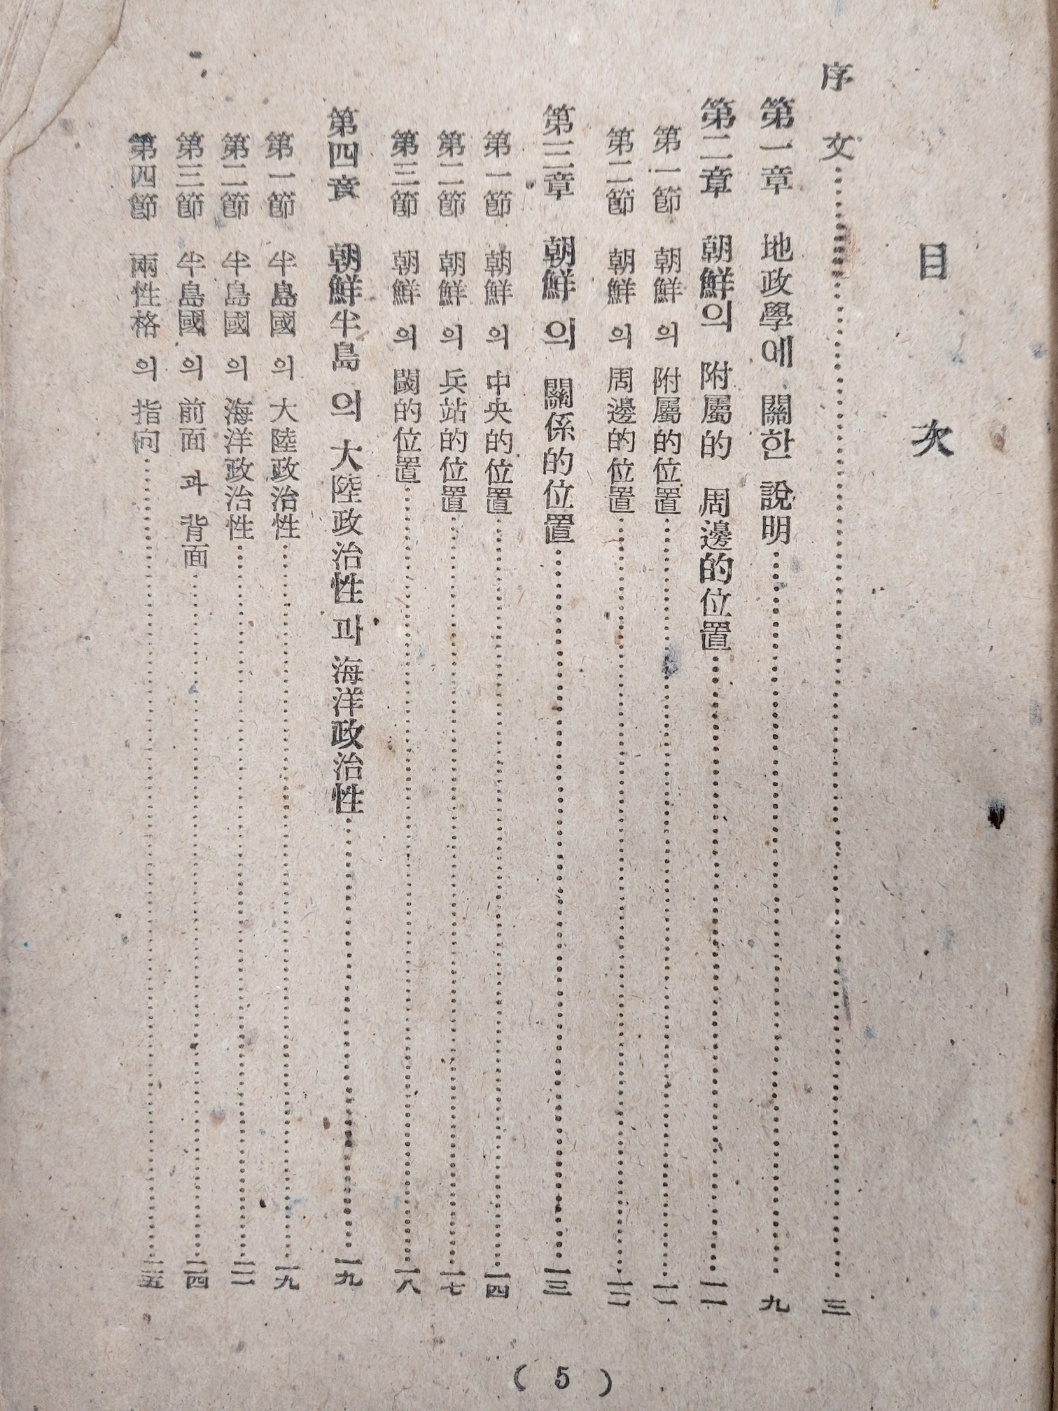 目 次
序 文……三
第一章 地政學에 關한 說明……九
第二章 朝鮮의 附屬的 周邊的位置……一一
第一節 朝鮮 의 附屬的位置……一一
第二節 朝鮮 의 周邊的位置……一二
第三章 朝鮮 의 關係的位置……一三
第一節 朝鮮 의 中央的位置……一四
第二節 朝鮮 의 兵站的位置……一七
第三節 朝鮮 의 閾的位置……一八
第四章 朝鮮半島 의 大陸政治性 과 海洋政治性……一九
第一節 半島國 의 大陸政治性……一九
第二節 半島國 의 海洋政治性……二一
第三節 半島國 의 前面 과 背面……二四
第四節 兩性格 의 指向……二五
( 5 )